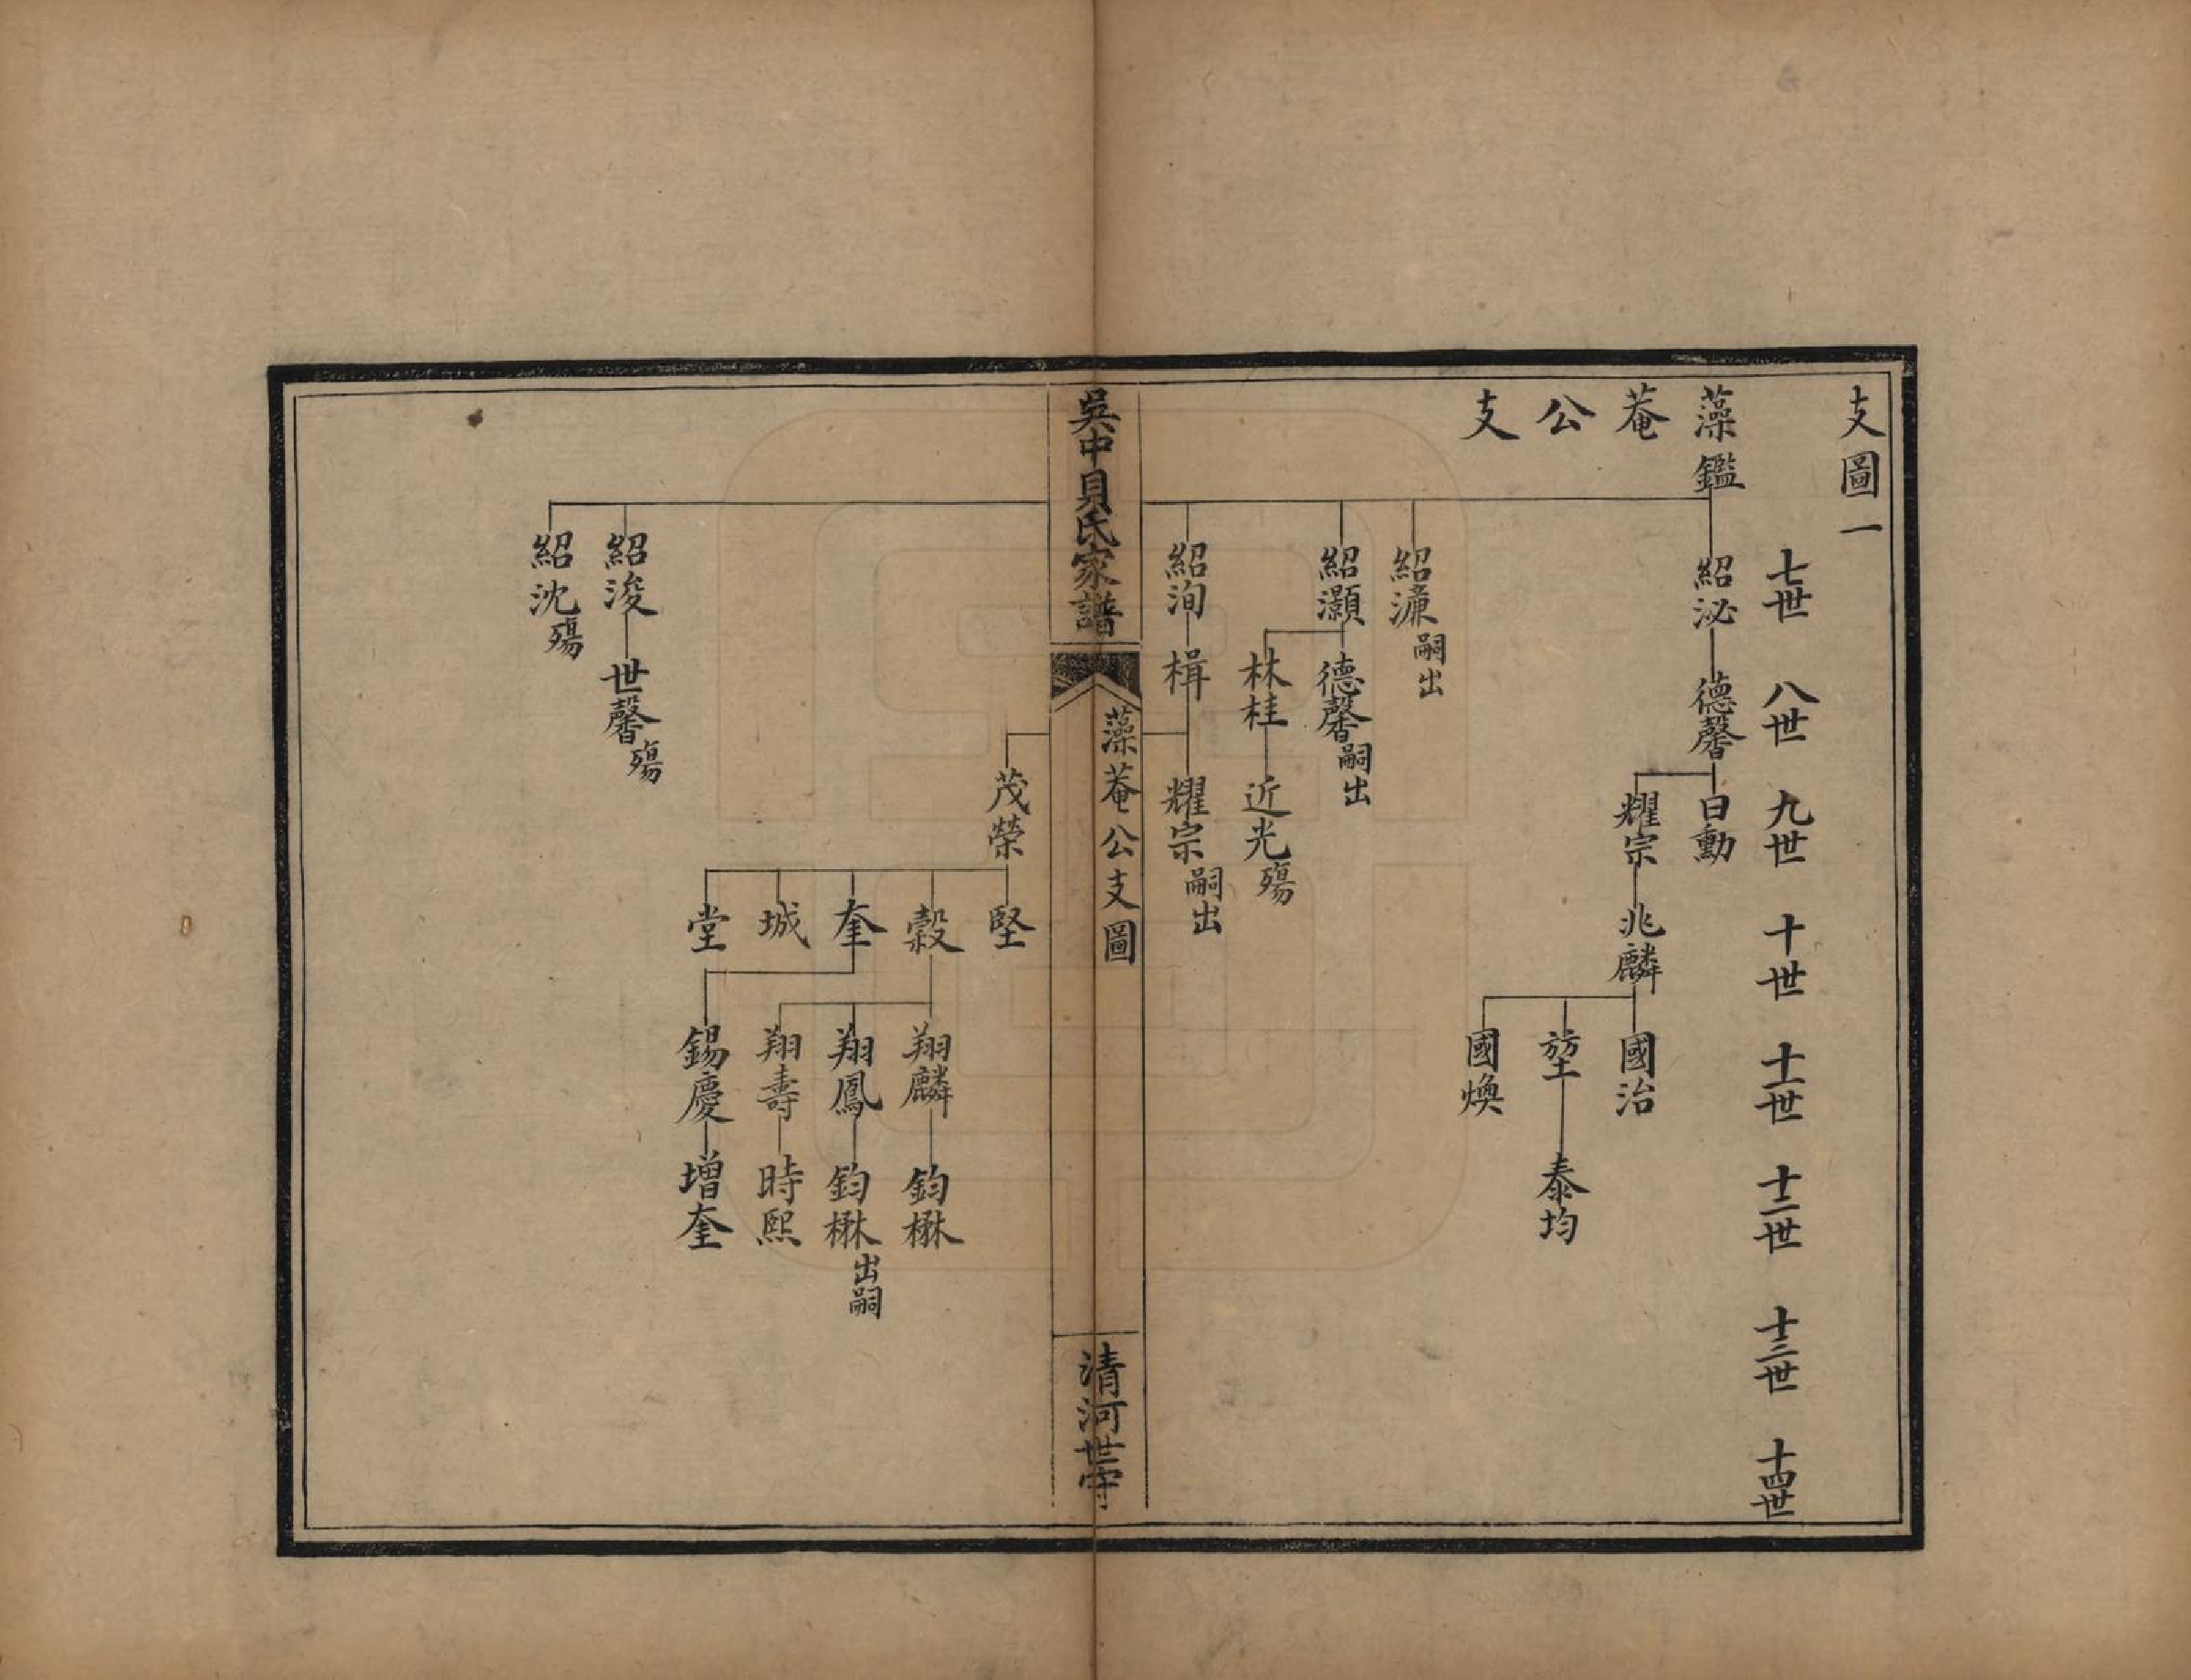 支圖一
七世 八世 九世 十世 十一世 十二世 十三世 十四世
藻菴公支
鑑
紹泌 德馨 日勳
耀宗 兆麟 國治
堃 泰均
國煥
紹濂 嗣出
紹灝 德馨 嗣出
林桂 近光 殤
紹洵 楫 耀宗 嗣出
吳中貝氏家譜
藻菴公支圖
清河世守
茂榮 堅
穀 翔麟 鈞楙
奎 翔鳳 鈞楙 出嗣
城 翔壽 時熙
堂 錫慶 增奎
紹浚 世馨 殤
紹沈 殤